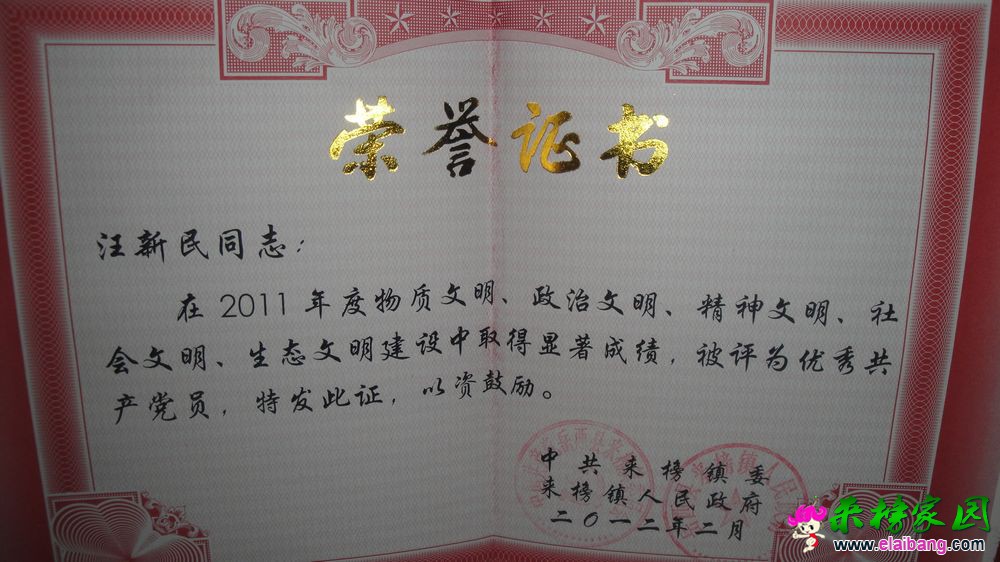 荣誉证书
汪新民同志：
在2011年度物质文明、政治文明、精神文明、社
会文明、生态文明建设中取得显著成绩，被评为优秀共
产党员，特发此证，以资鼓励。
中共来榜镇委
来榜镇人民政府
二〇一二年二月
来榜家园
www.elaibang.com